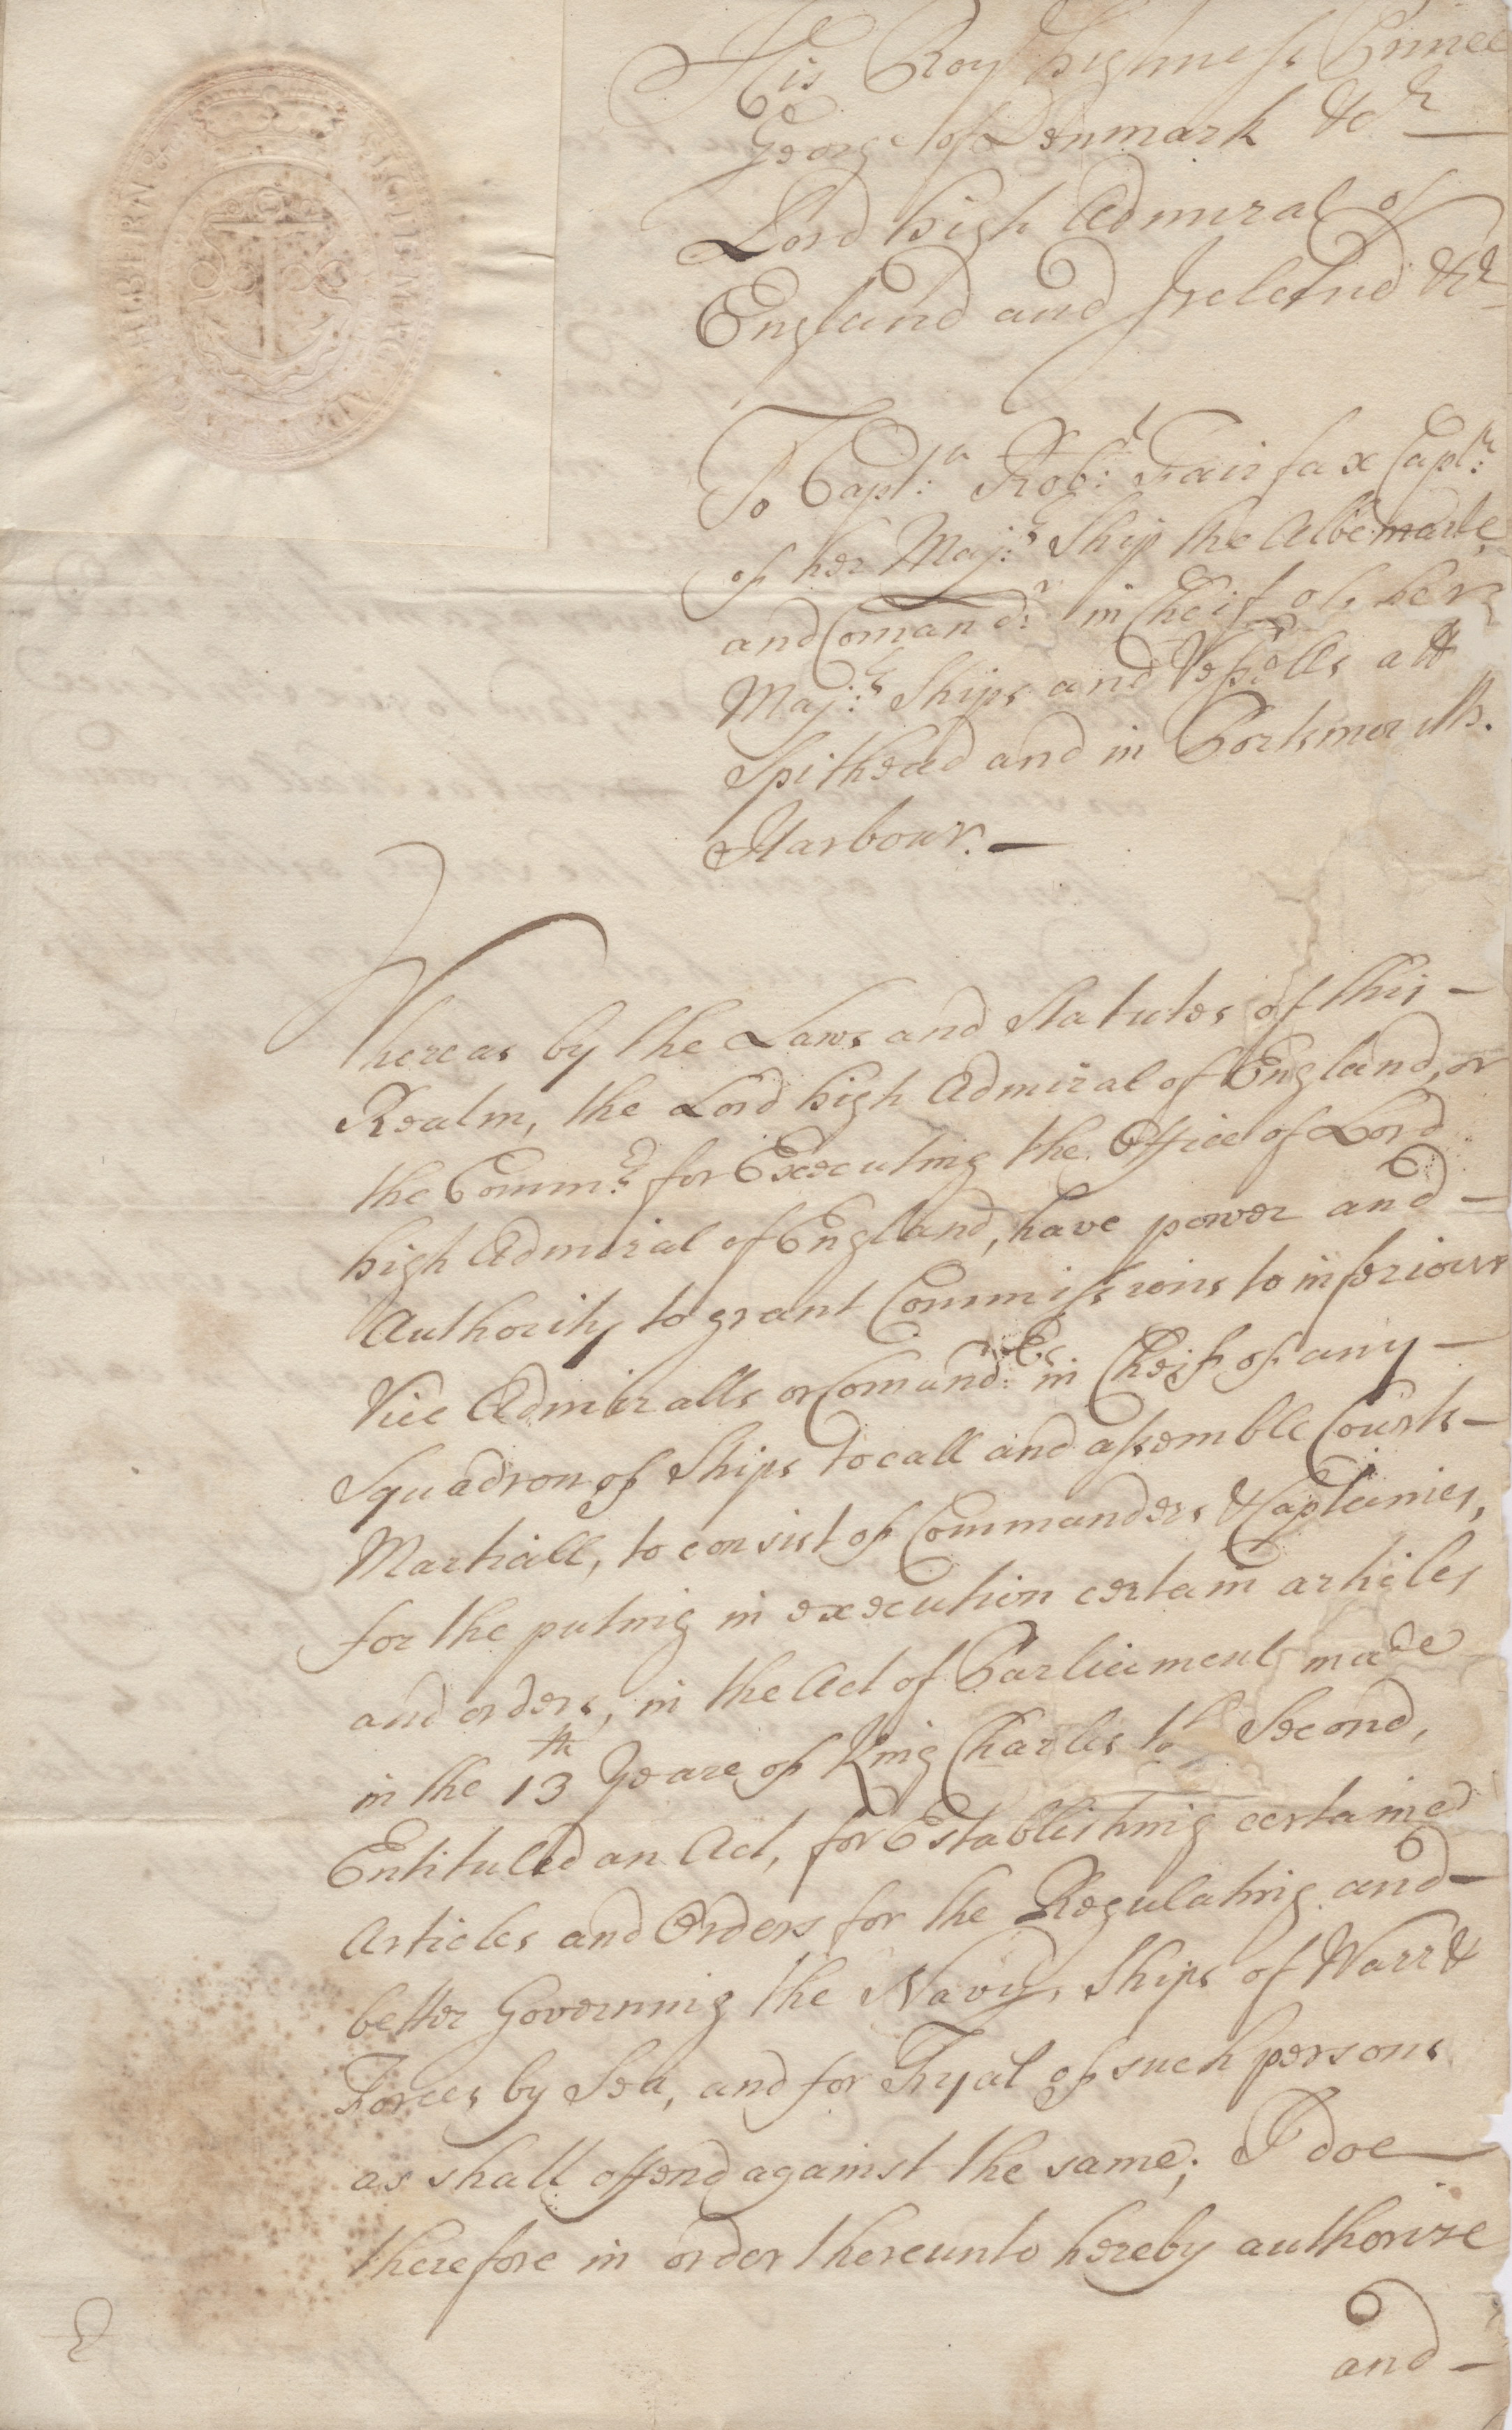 His Roy.ll highness Prince
George of Denmark &c.a
Lord high Admiral of
England and Ireland &c.a
To Capt.n Rob.t Fairfax Capt.n
of her Maj.s Ship the Albemarle
and Comand.r in Cheif of her
Maj.s Ships and Vessells att
Spithead and in Portsmouth
Harbour.
Whereas by the Laws and Statutes of this
Realm, the Lord high Admiral of England, or
the Comm.rs for Executing the Office of Lord
high Admiral of England, have power and
Authority to grant Commissions to inferiour
Vice Admiralls or Comand.rs in Cheif of any
Squadron of Ships to call and assemble Courts
Martiall, to consist of Commanders & Captaines,
for the puting in execution certain articles
and orders, in the Act of Parliament made
in the 13th Yeare of King Charles the Second,
Entituled an Act, for Establishing certaine
Articles and Orders for the Regulating and
better Governing the Navy, Ships of Warr &
Forces by Sea, and for Tryal of such persons
as shall offend against the same; I doe
therefore in order thereunto hereby authorize
and